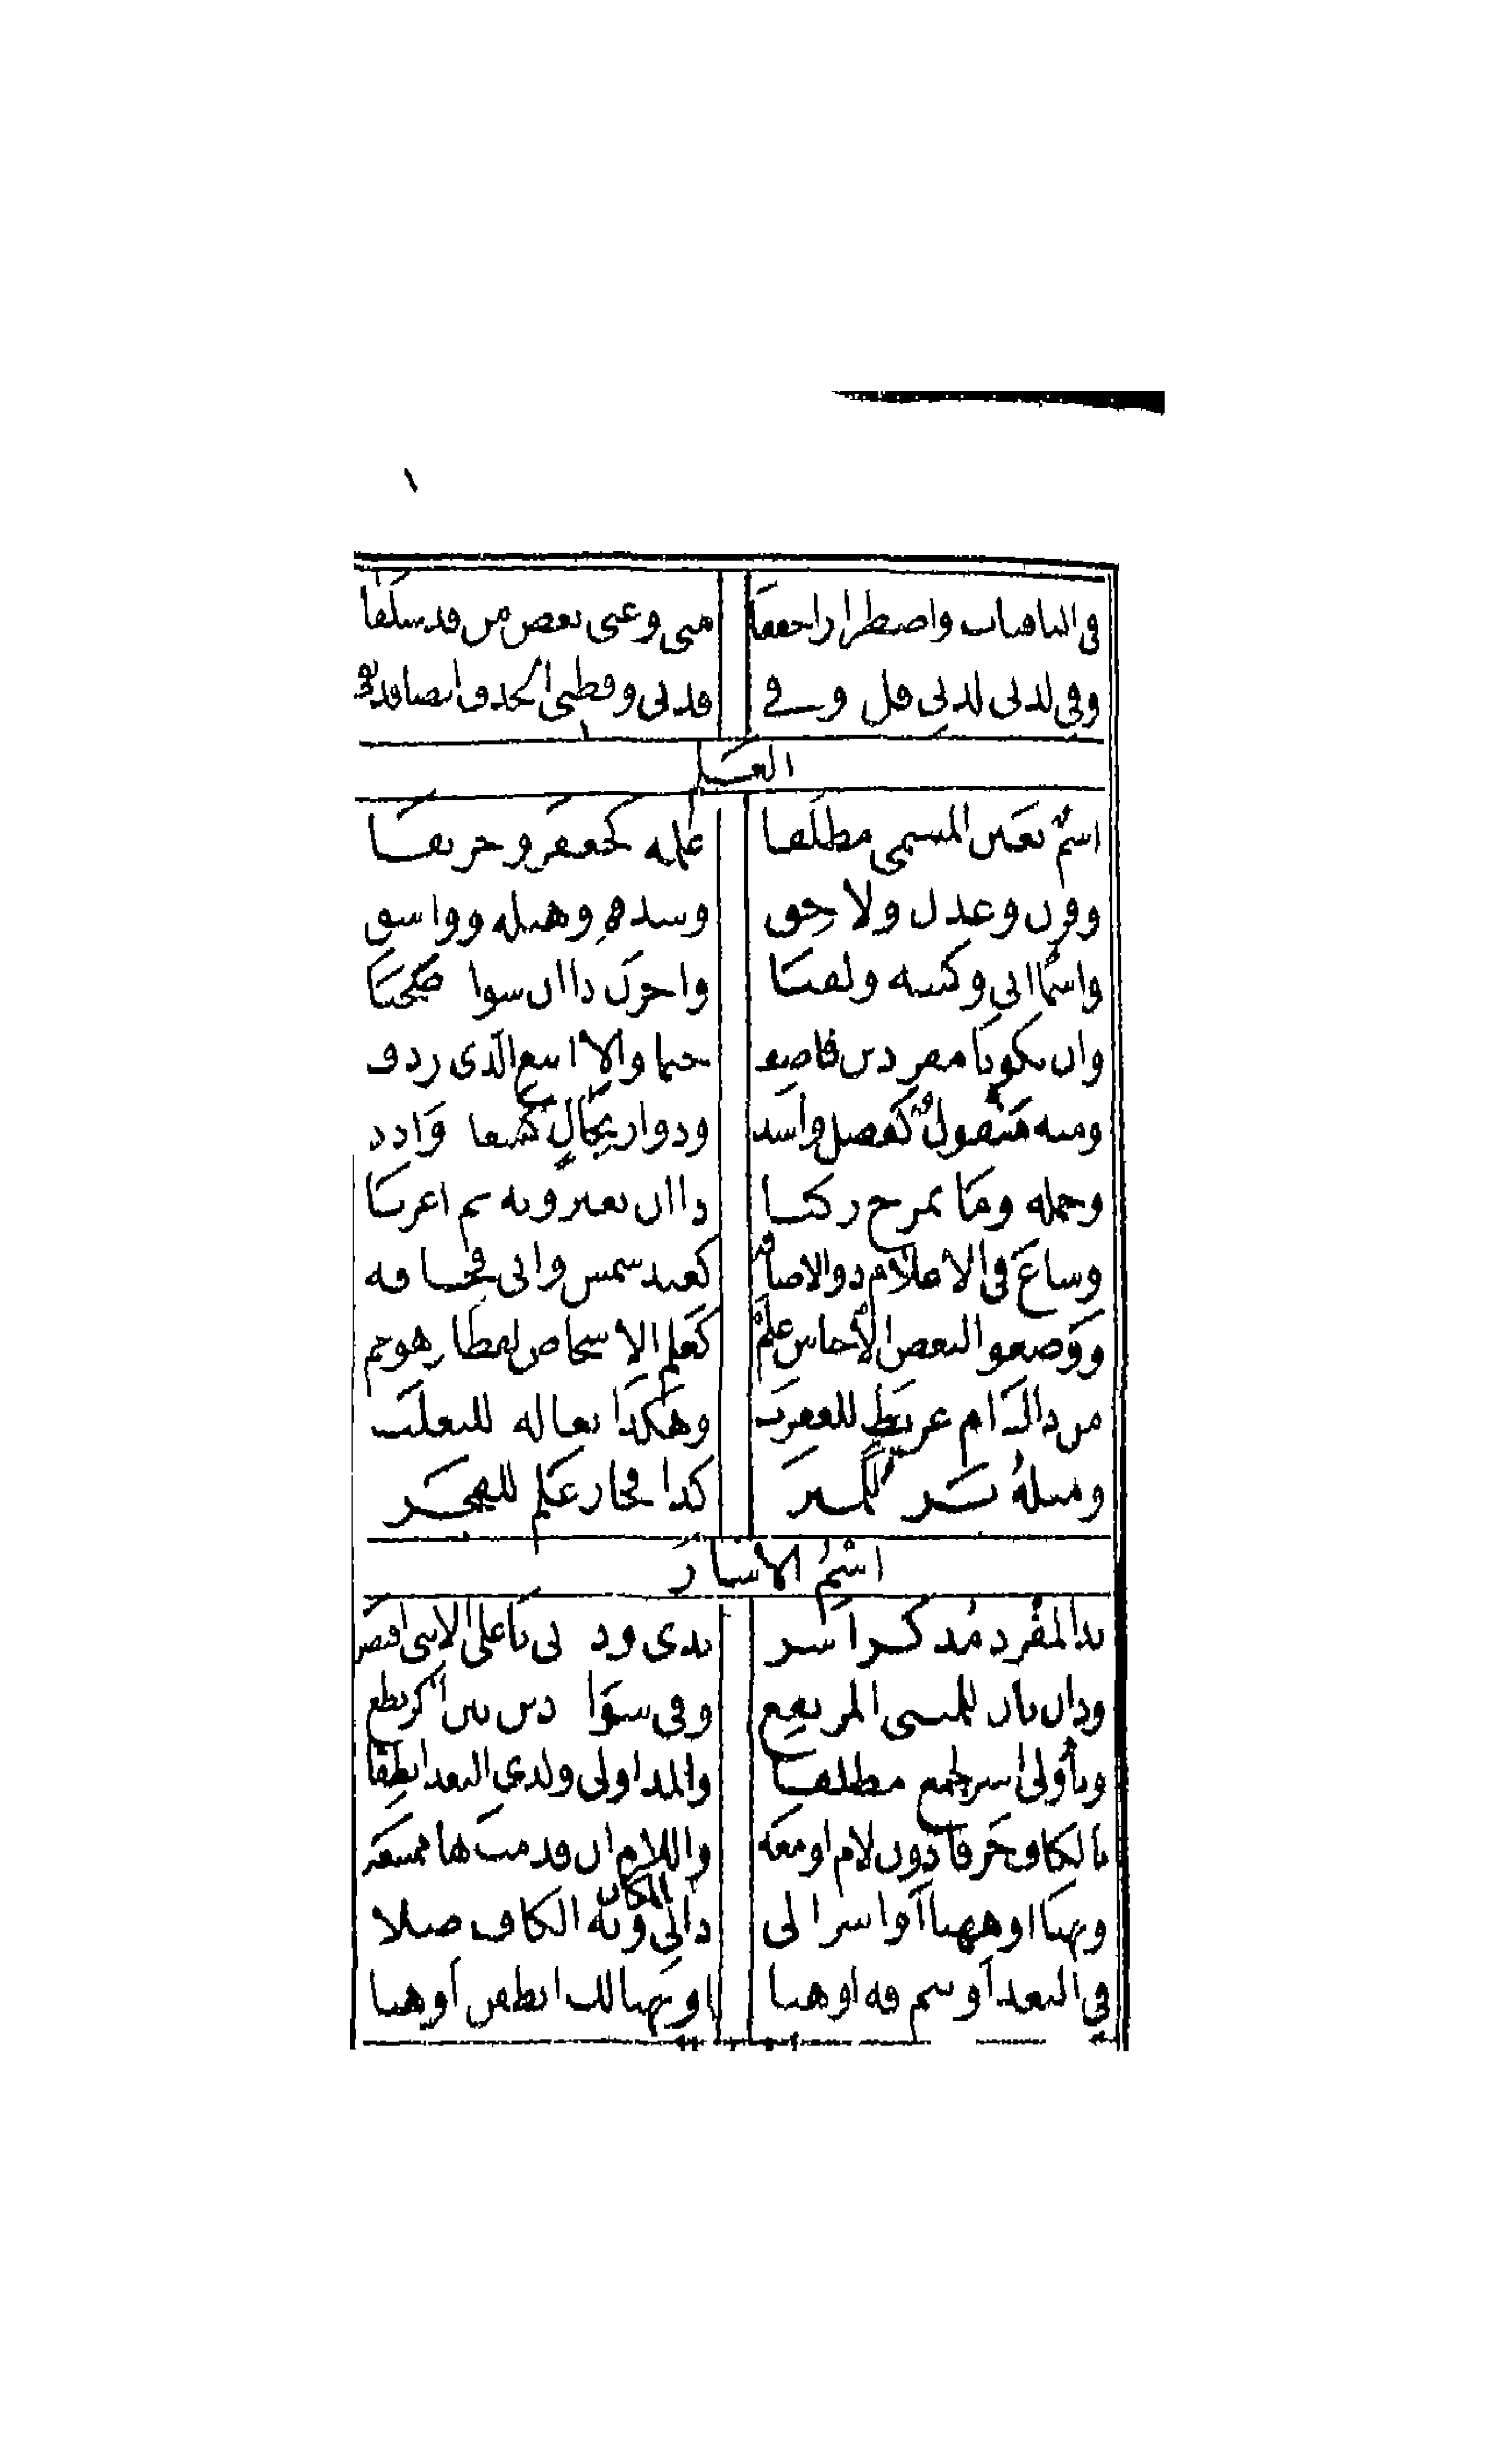 في الباقيات واضطرارا خففا مني وعني بعض من قد سلفا
وفي لدني لدني قل وفي قدني وقطني الحذف ايضا قد يفي
العلم
اسم يعين المسمى مطلقا علمه كجعفر وخرنقا
وقرن وعدن ولاحق وشذقم وهيلة وواشق
واسما اتى وكنية ولقبا واخرن ذا ان سواه صحبا
وان يكونا مفردين فاضف حتما والا اتبع الذي ردف
ومنه منقول كفضل واسد وذو ارتجال كسعاد وادد
وجملة وما بمزج ركبا ذا ان بغير ويه تم اعربا
وشاع في الاعلام ذو الاضافه كعبد شمس وابي قحافه
ووضعوا لبعض الاجناس علم كعلم الاشخاص لفظا وهو عم
من ذاك ام عريط للعقرب وهكذا ثعاله للثعلب
ومثله برة للمبره كذا فجار علم للفجره
اسم الاشاره
بذا لمفرد مذكر اشر بذي وذه تي تا على الانثى اقتصر
وذان تان للمثنى المرتفع وفي سواه ذين تين اذكر تطع
وباولى اشر لجمع مطلقا والمد اولى ولدى البعد انطقا
بالكاف حرفا دون لام او معه واللام ان قدمت ها ممتنعه
وبهنا او ههنا اشر الى داني المكان وبه الكاف صلا
في البعد او بثم فه او هنا او بهنالك انطقن او هنا